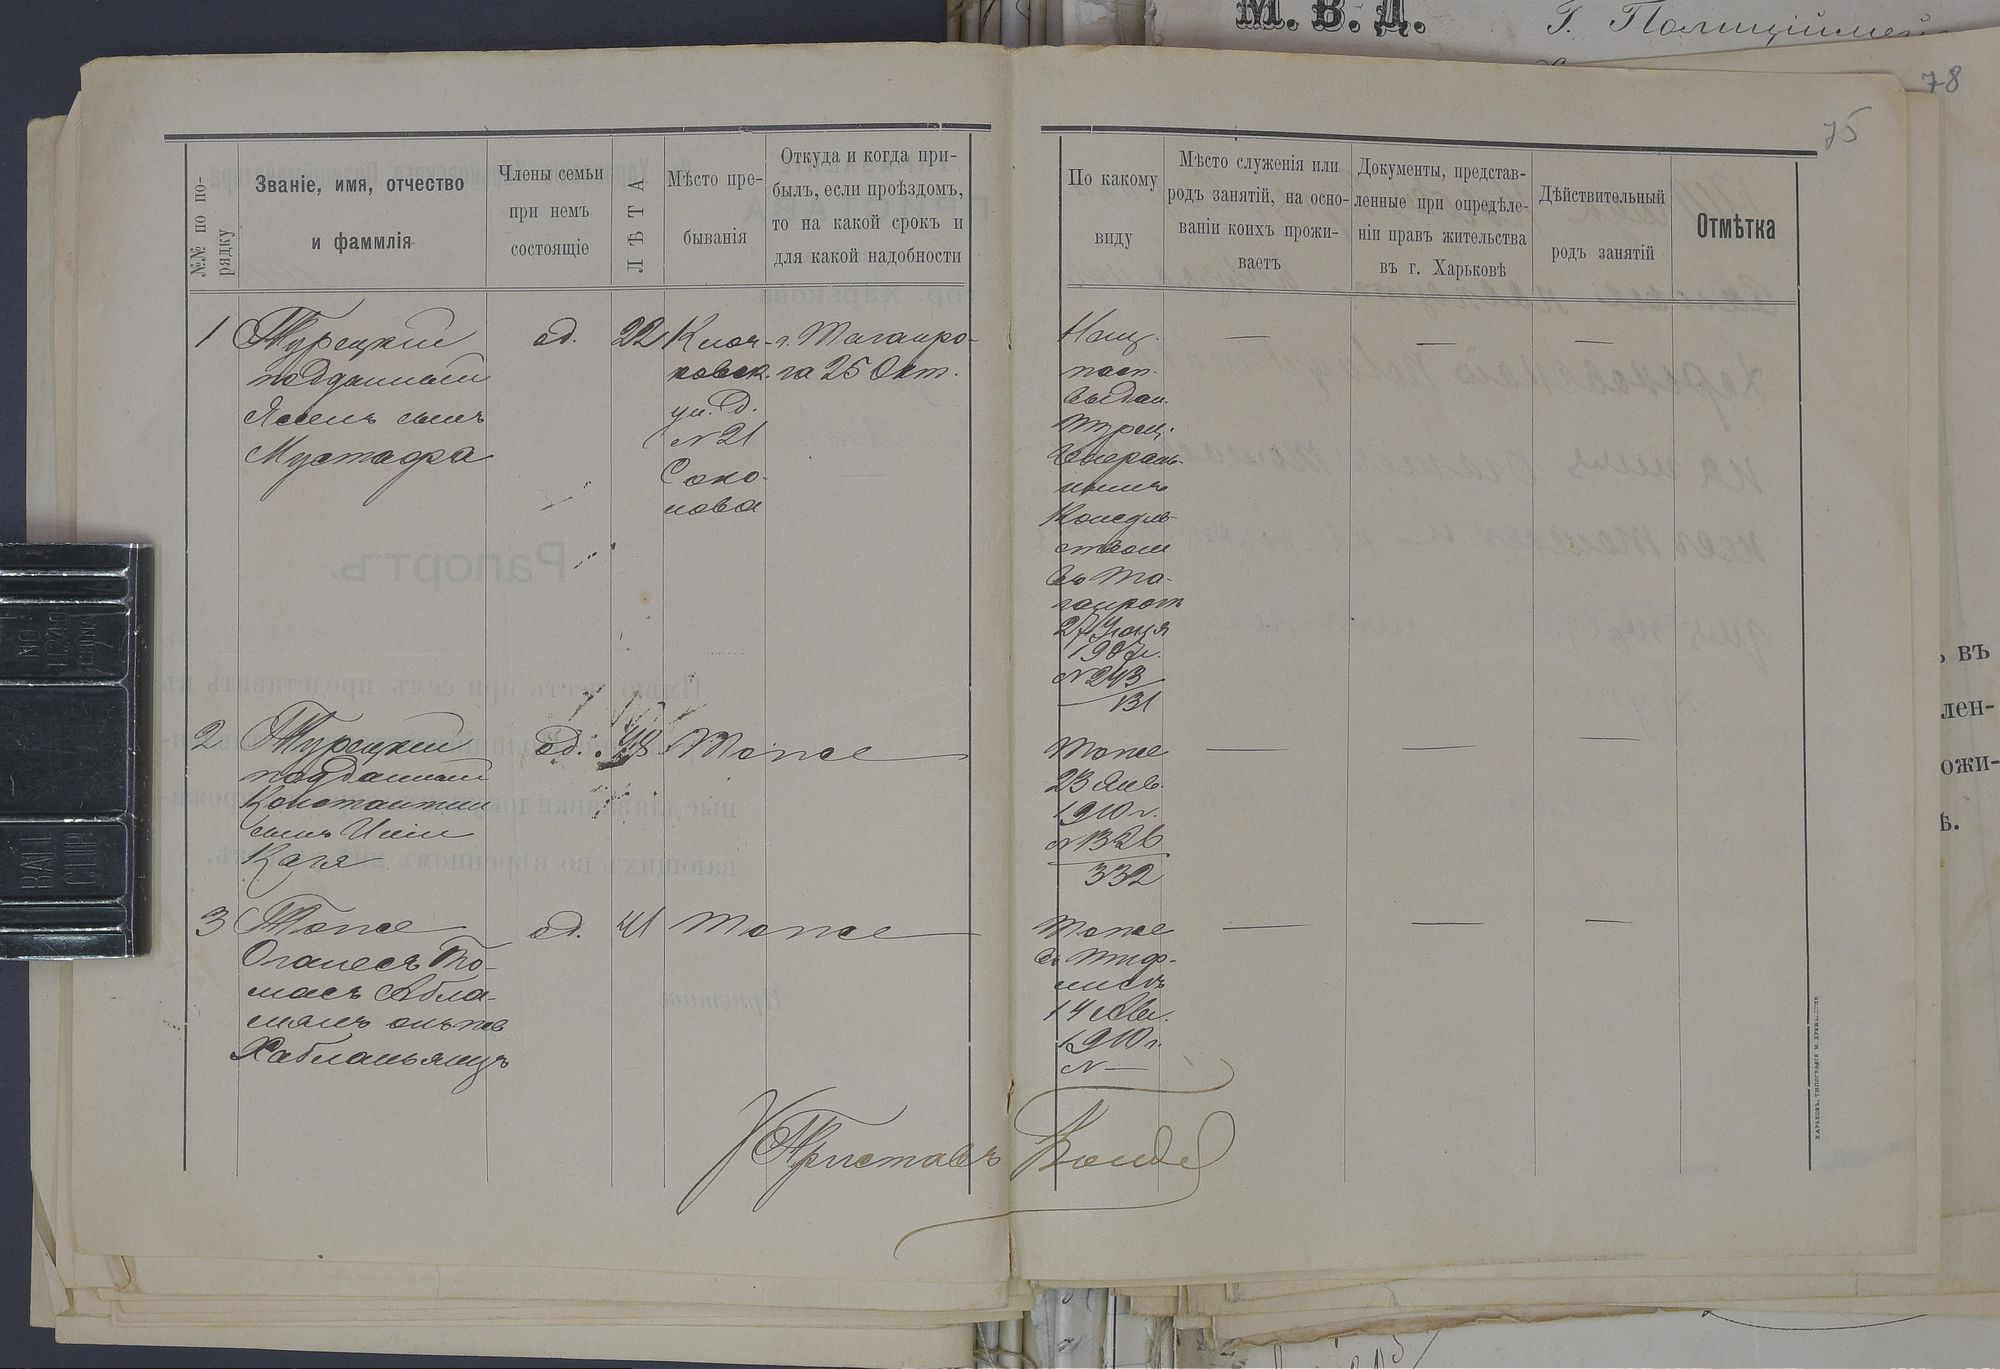 М. В. Д.
Г. Полиціймей
78
75
№№ по по-
рядку
Званіе, имя, отчество
и фамилія
Члены семьи
при немъ
состоящіе
ЛѢТА
Мѣсто пре-
быванія
Откуда и когда при-
былъ, если проѣздомъ,
то на какой срокъ и
для какой надобности
По какому
виду
Мѣсто служенія или
родъ занятій, на осно-
ваніи коихъ прожи-
ваетъ
Документы, представ-
ленные при опредѣле-
ніи правъ жительства
въ г. Харьковѣ
Дѣйствительный
родъ занятій
Отмѣтка
1
Турецкий
подданный
сынъ
Мустафа
од.
22
Клоч-
ковск.
ул. д.
N 21
Соко-
лова
г. Таганро-
га 25 Окт.
—
Нац.
пасп.
выдан.
Турец.
Генераль-
нымъ
Консуль-
ством
въ Та-
ганроге
1907г.
N 243
131
—
—
—
2
Турецкий
подданный
Константин
сынъ
од.
48
Тоже
Тоже
23 Янв.
1910 г.
N 1326
332
—
—
—
3
Тоже
Оганесъ То-
масъ Абла-
Хабланьянцъ
од.
41
Тоже
Тоже
въ Тиф-
лисѣ
14 Авг.
1910г.
N —
—
—
—
Приставъ
ХАРЬКОВЪ, ТИПОГРАФІЯ
ъ въ
лен-
ожи-
ѣ.